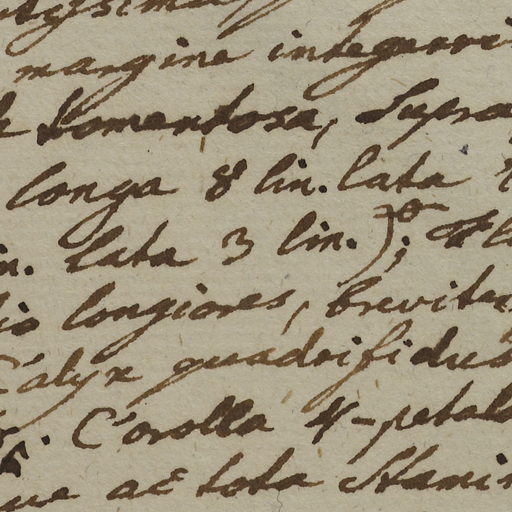 margine integerri
tomentosa, supra
longa 8 lin. lata
in. lata 3 lin.);
io longiores, brevite
Calyx quadrifidus
. Corolla 4-petala
ue ac tota stami